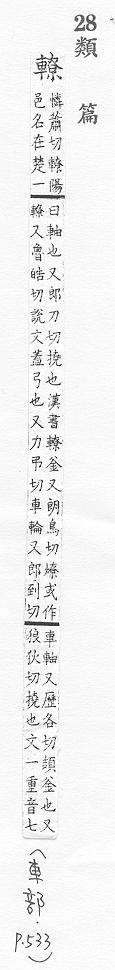 28類
篇
轑
憐蕭切轑陽
邑名在楚一
曰軸也又郎刀切撓也漢書轑釜又朗鳥切燎或作
轑又魯皓切說文蓋弓也又力弔切車輪又郎到切
車軸又歷各切頡釜也又
狼狄切撓也文一重音七
(車部.
P.533)